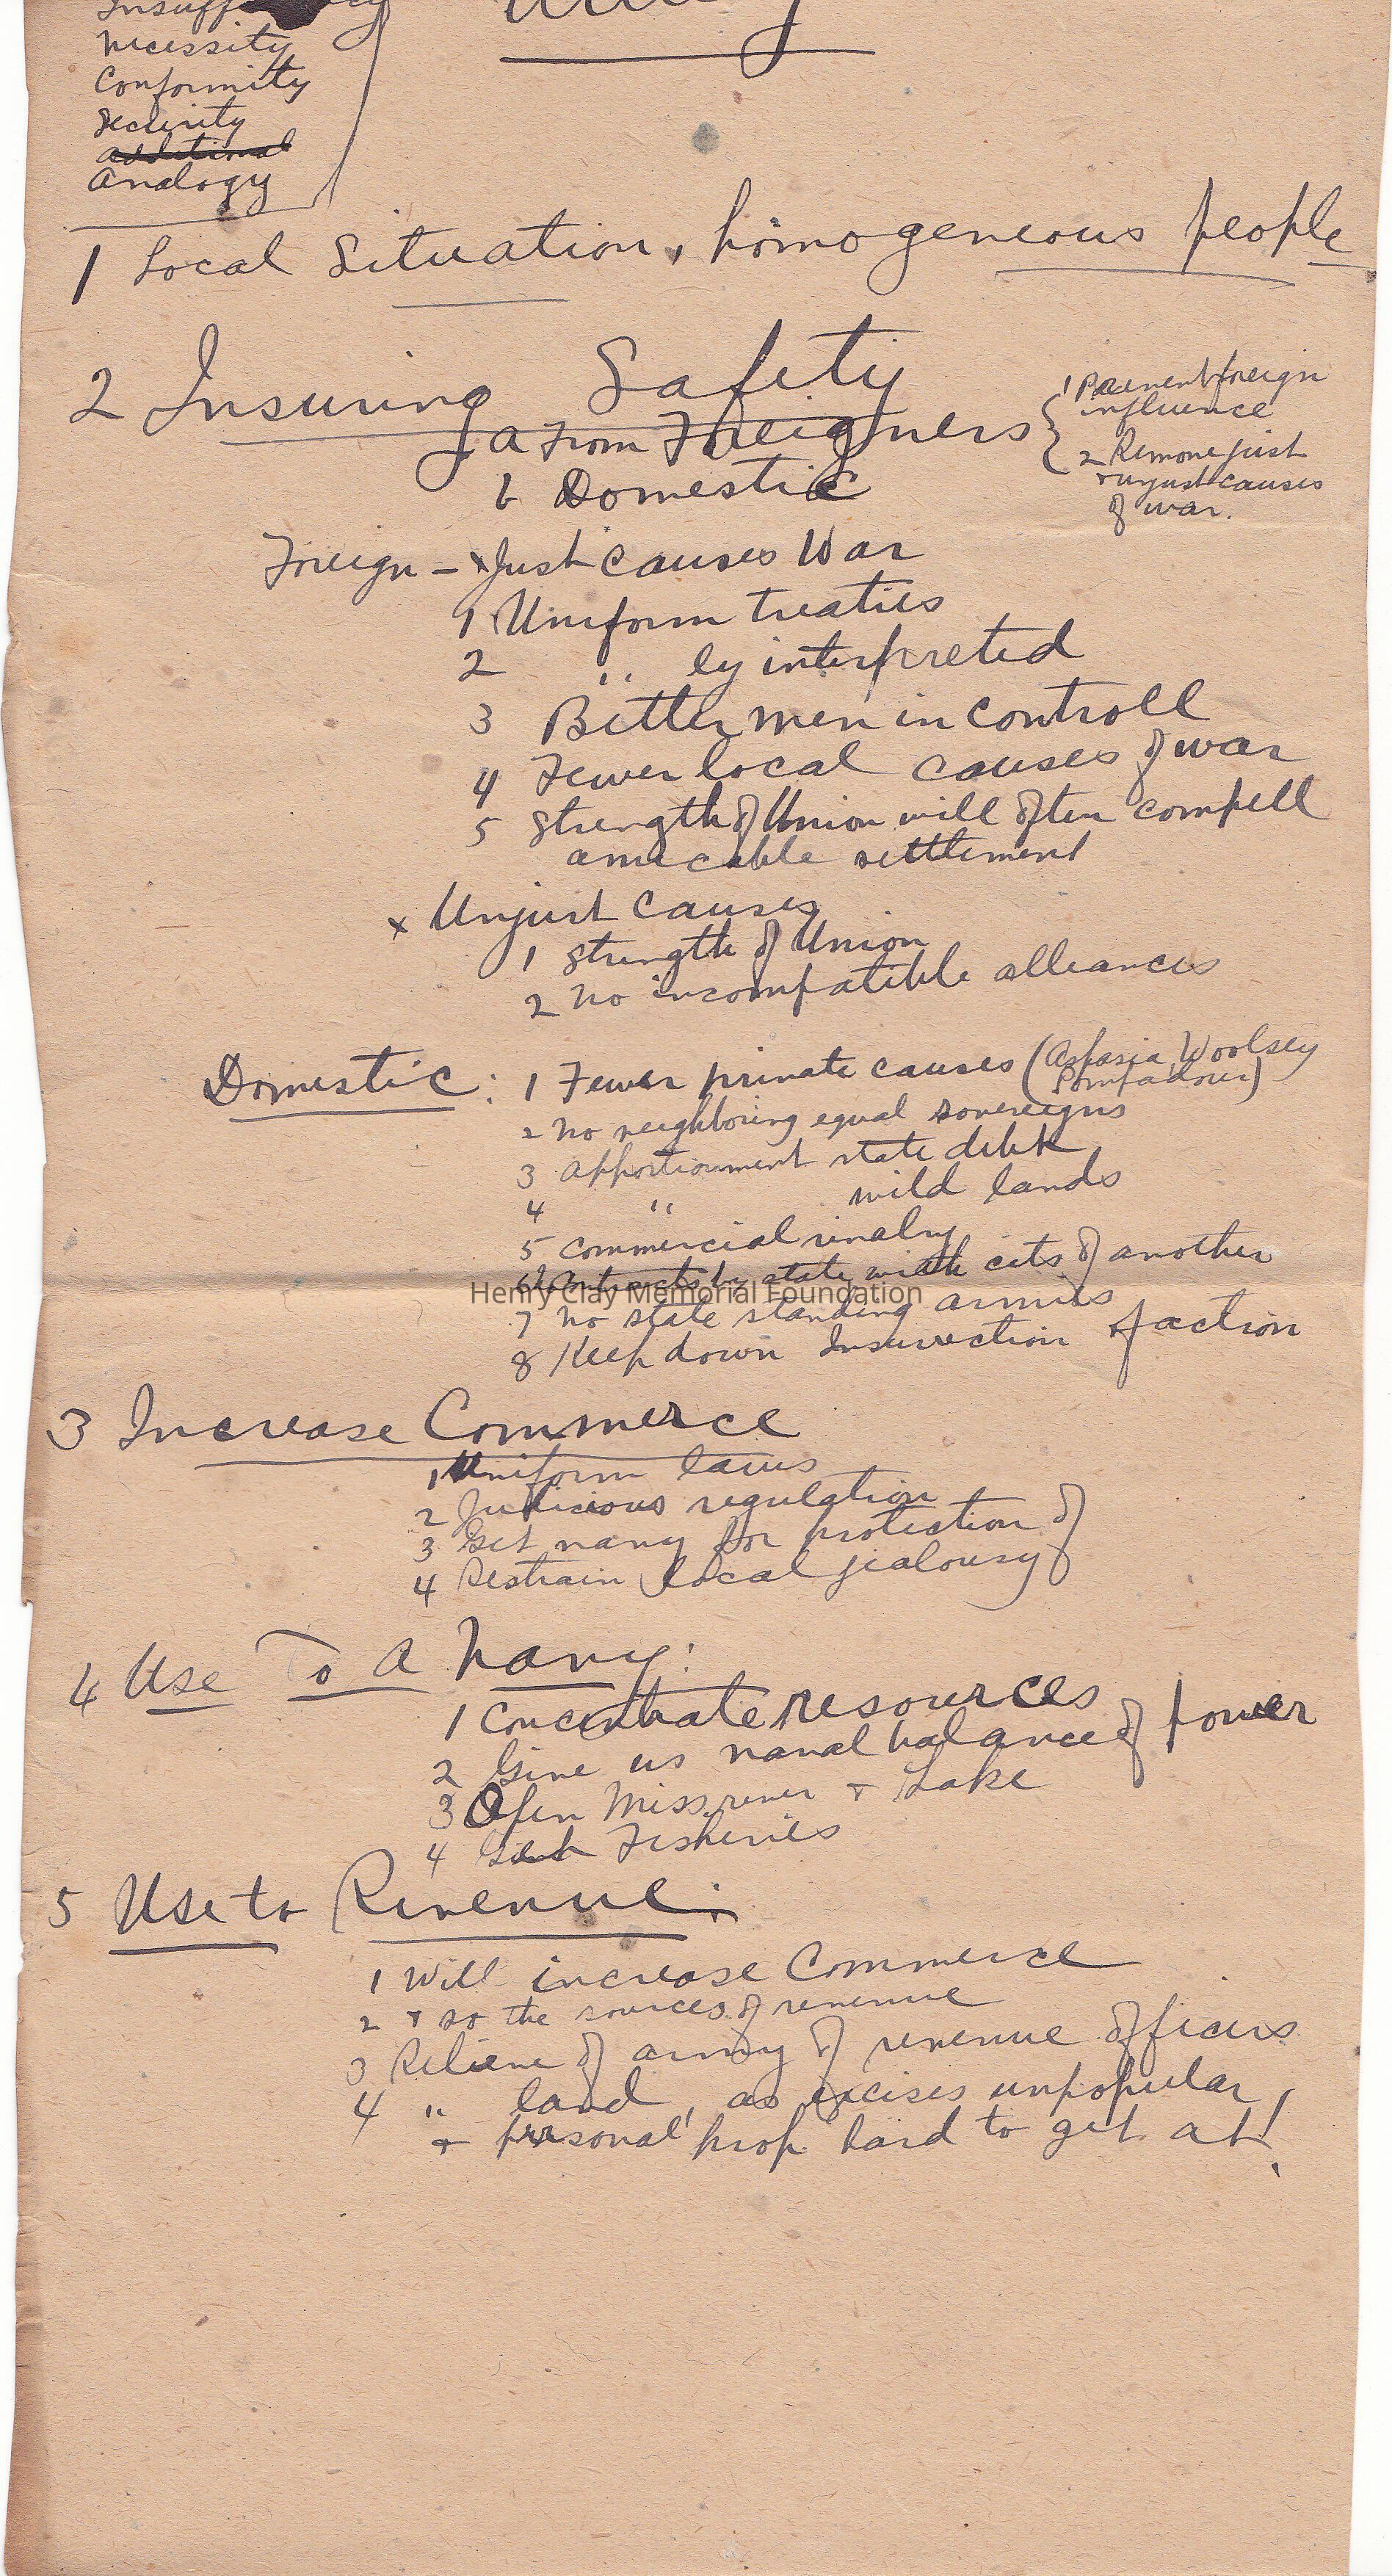 Necessity
Conformity
Security
additional
Analogy
1 Local Situation, homogeneous people
2 Insuring Safety
a From Foreigners
1 Prevent foreign
influence
2 Remove just
+ unjust causes
of war.
b Domestic
Foreign - x Just Causes War
1 Uniform treaties
2 " ly interpreted
3 Better men in controll
4 Fewer local causes of war
5 Strength of Union will often compell
amicable settlement
x Unjust Causes
1 Strength of Union
2 No incompatible alliances
Domestic: 1 Fewer private causes (Aspasia, Woolsey
Pompadour)
2 No neighboring equal sovereigns
3 Apportionment state debt
4 " wild lands
5 Commercial rivalry
6 Contracts by state with cits of another
7 No state standing armies
8 Keep down Insurrection + faction
3 Increase Commerce
1 Uniform laws
2 Judicious regulation
3 Get navy for protection of
4 Restrain local jealousy
4 Use To A Navy:
1 Concentrate resources
2 Give us naval balance of power
3 Open Miss. river + Lake
4 Fisheries
5 Use to Revenue:
1 Will increase Commerce
2 + so the sources of revenue
3 Relieve of army of revenue officers
4 " land, as excises unpopular
+ personal prop. hard to get at!
Henry Clay Memorial Foundation